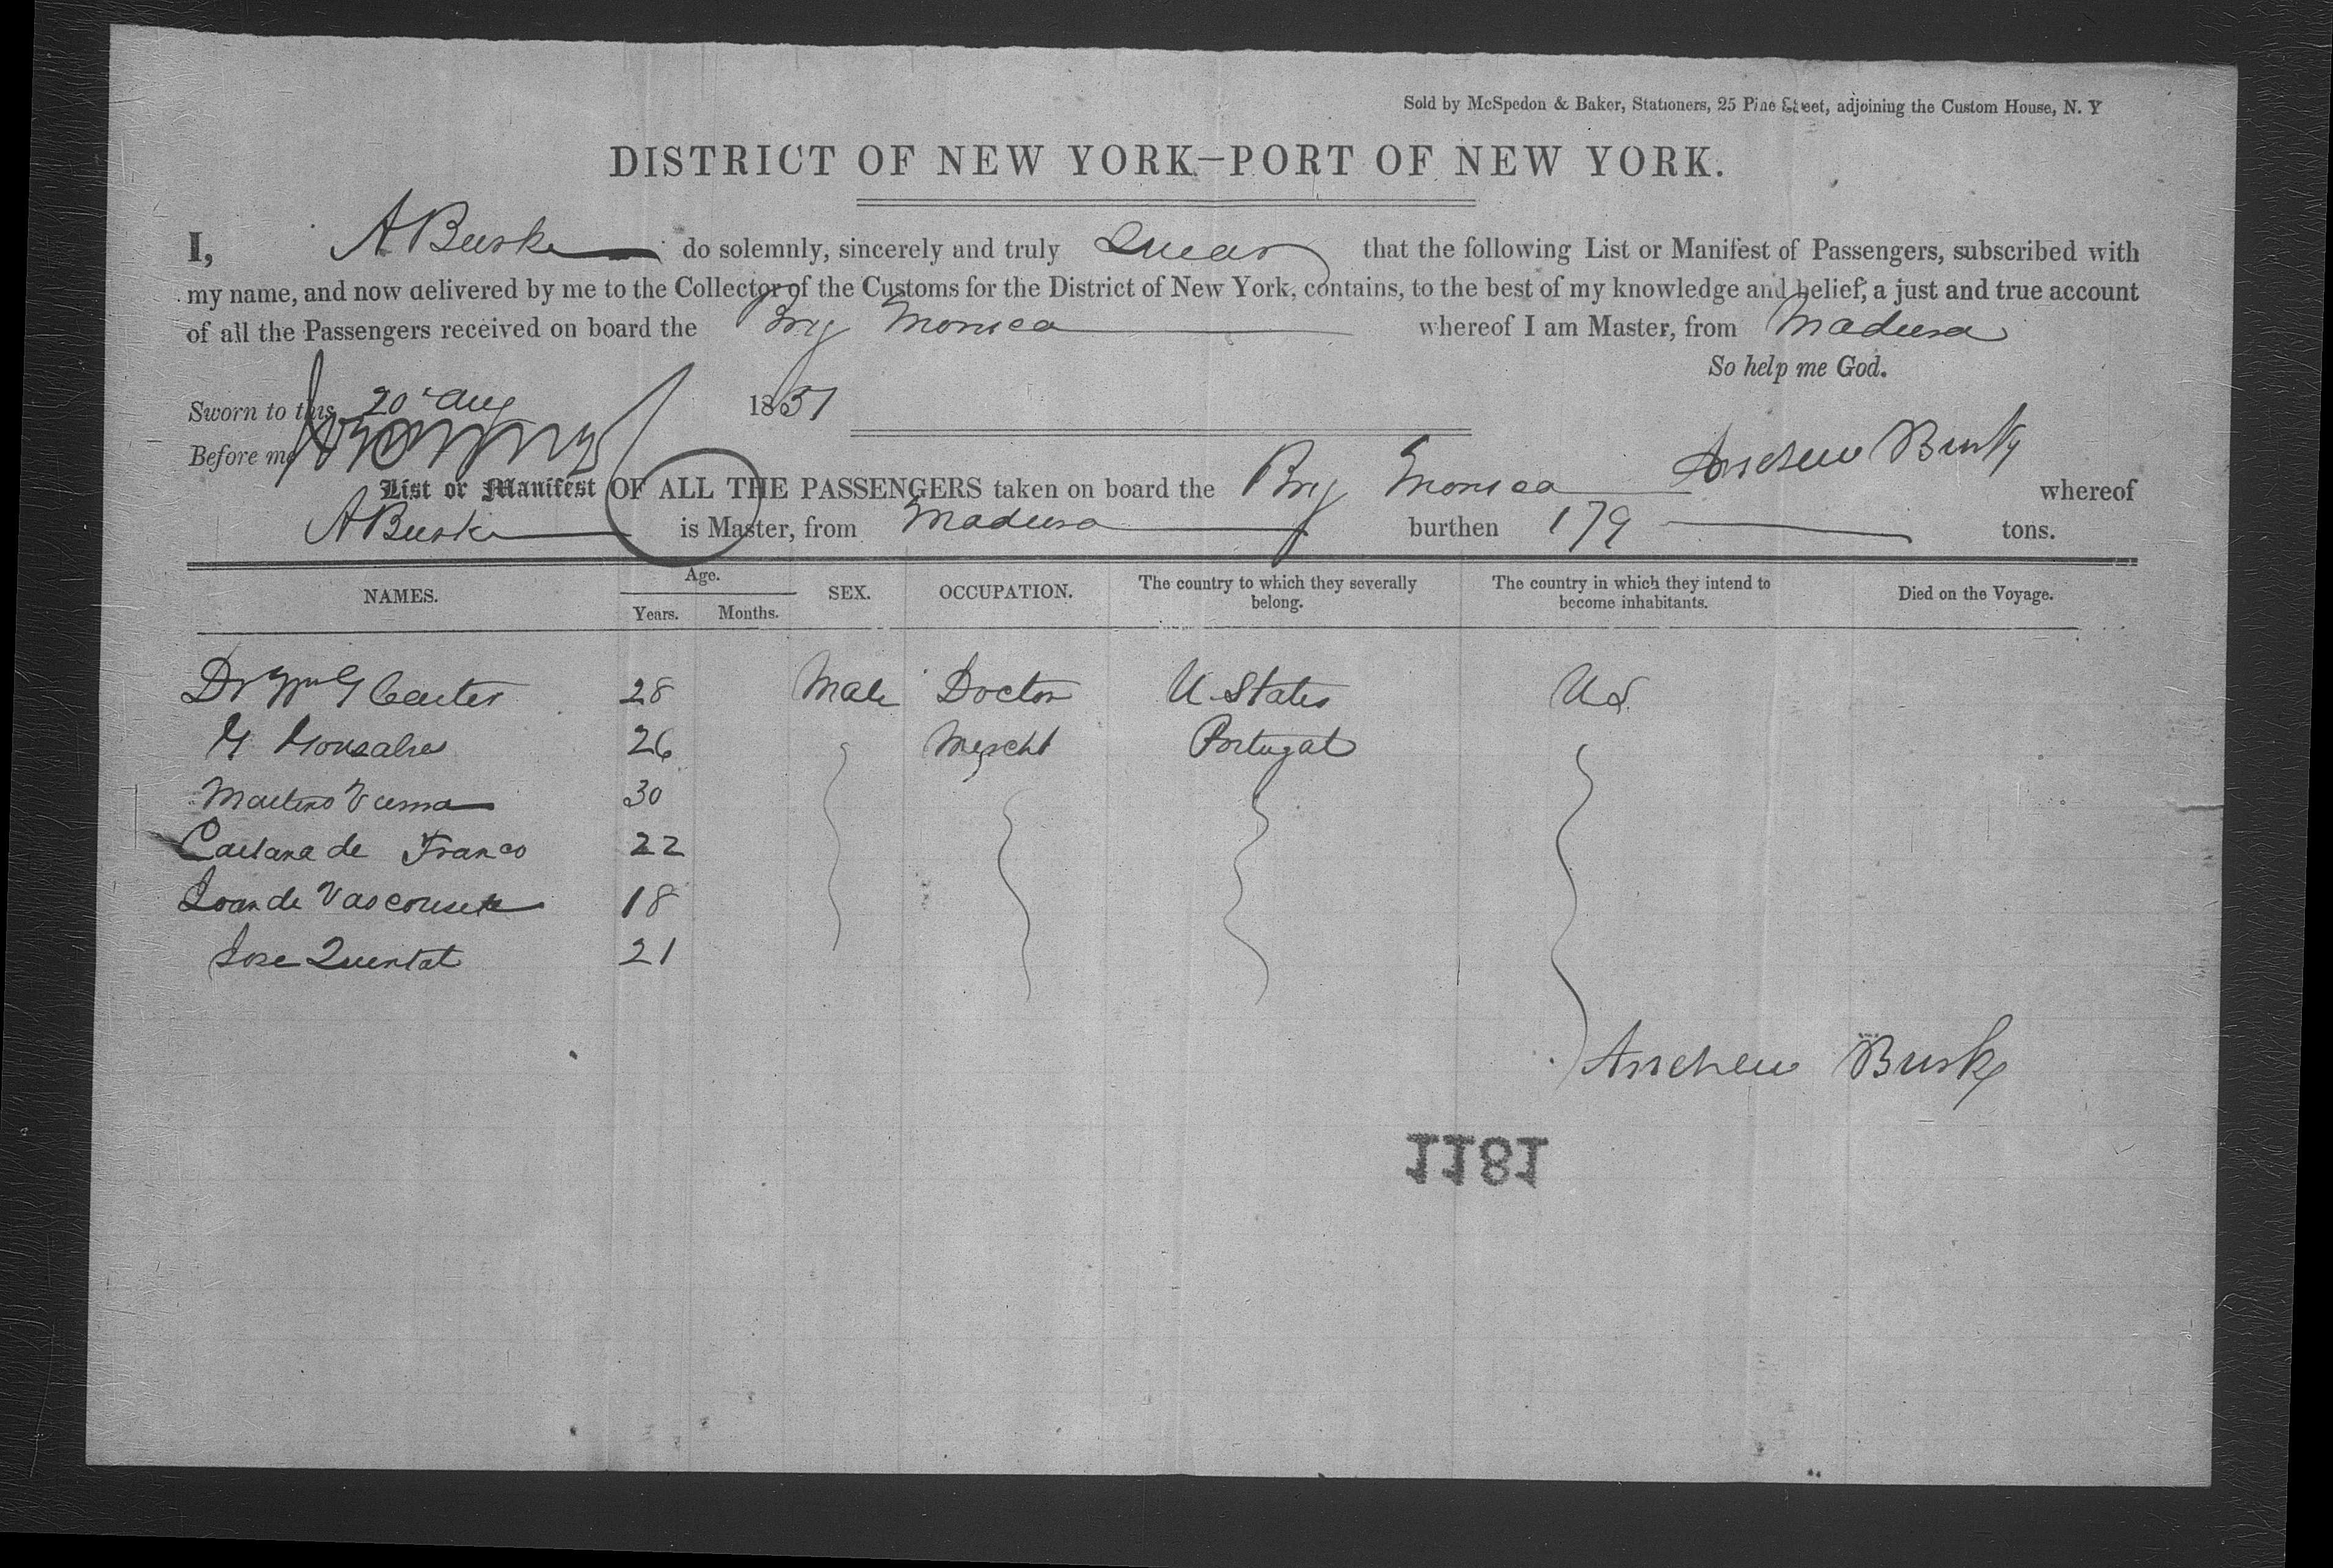 Sold by McSpedon & Baker, Stationers, 25 Pine Street, adjoining the Custom House, N. Y
DISTRICT OF NEW YORK—PORT OF NEW YORK.
I, A Burke do solemnly, sincerely and truly Swear that the following List or Manifest of Passengers, subscribed with
my name, and now delivered by me to the Collector of the Customs for the District of New York, contains, to the best of my knowledge and belief, a just and true account
of all the Passengers received on board the Brig Monica whereof I am Master, from Madeira
So help me God.
Sworn to this 20 Aug 1851
Before me
Andrew Burke
List or Manifest OF ALL THE PASSENGERS taken on board the Brig Monica whereof
A Burke is Master, from Madeira burthen 179 tons.
NAMES. Age. Years. Months. SEX. OCCUPATION. The country to which they severally belong. The country in which they intend to become inhabitants. Died on the Voyage.
Dr Wm G Carter 28 Male Doctor U. States US
26 Mercht Portugal
30
Caetana de Franco 22
Joan de 18
Jose Quental 21
Andrew Burke
1181